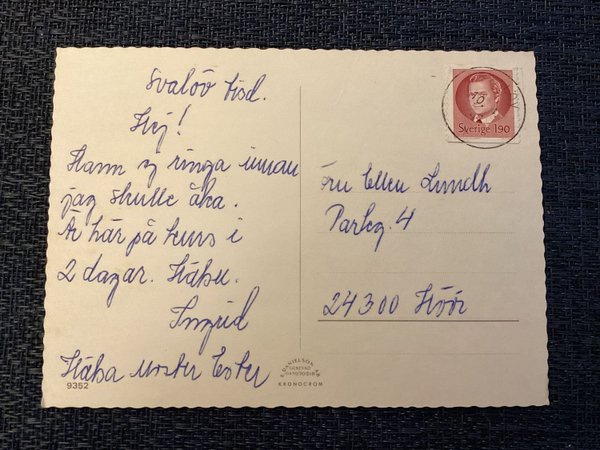 Svalöv tisd.
Hej!
Hann ej ringa innan
jag skulle åka.
Är här på kurs i
2 dagar. Hälsn.
Ingrid
Hälsa Moster Ester
9352
Sverige 190
Fru Ellen Lundh
Parkg. 4
24300 Höör
KRONOCROM